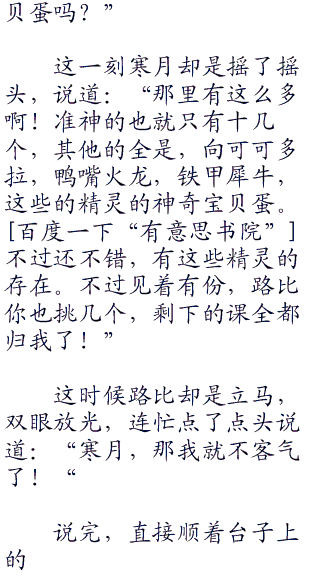 贝蛋吗？”
这一刻寒月却是摇了摇
头，说道：“那里有这么多
啊！准神的也就只有十几
个，其他的全是，向可可多
拉，鸭嘴火龙，铁甲犀牛，
这些的精灵的神奇宝贝蛋。
[百度一下“有意思书院”]
不过还不错，有这些精灵的
存在。不过见着有份，路比
你也挑几个，剩下的课全都
归我了！”
这时候路比却是立马，
双眼放光，连忙点了点头说
道：“寒月，那我就不客气
了！“
说完，直接顺着台子上
的